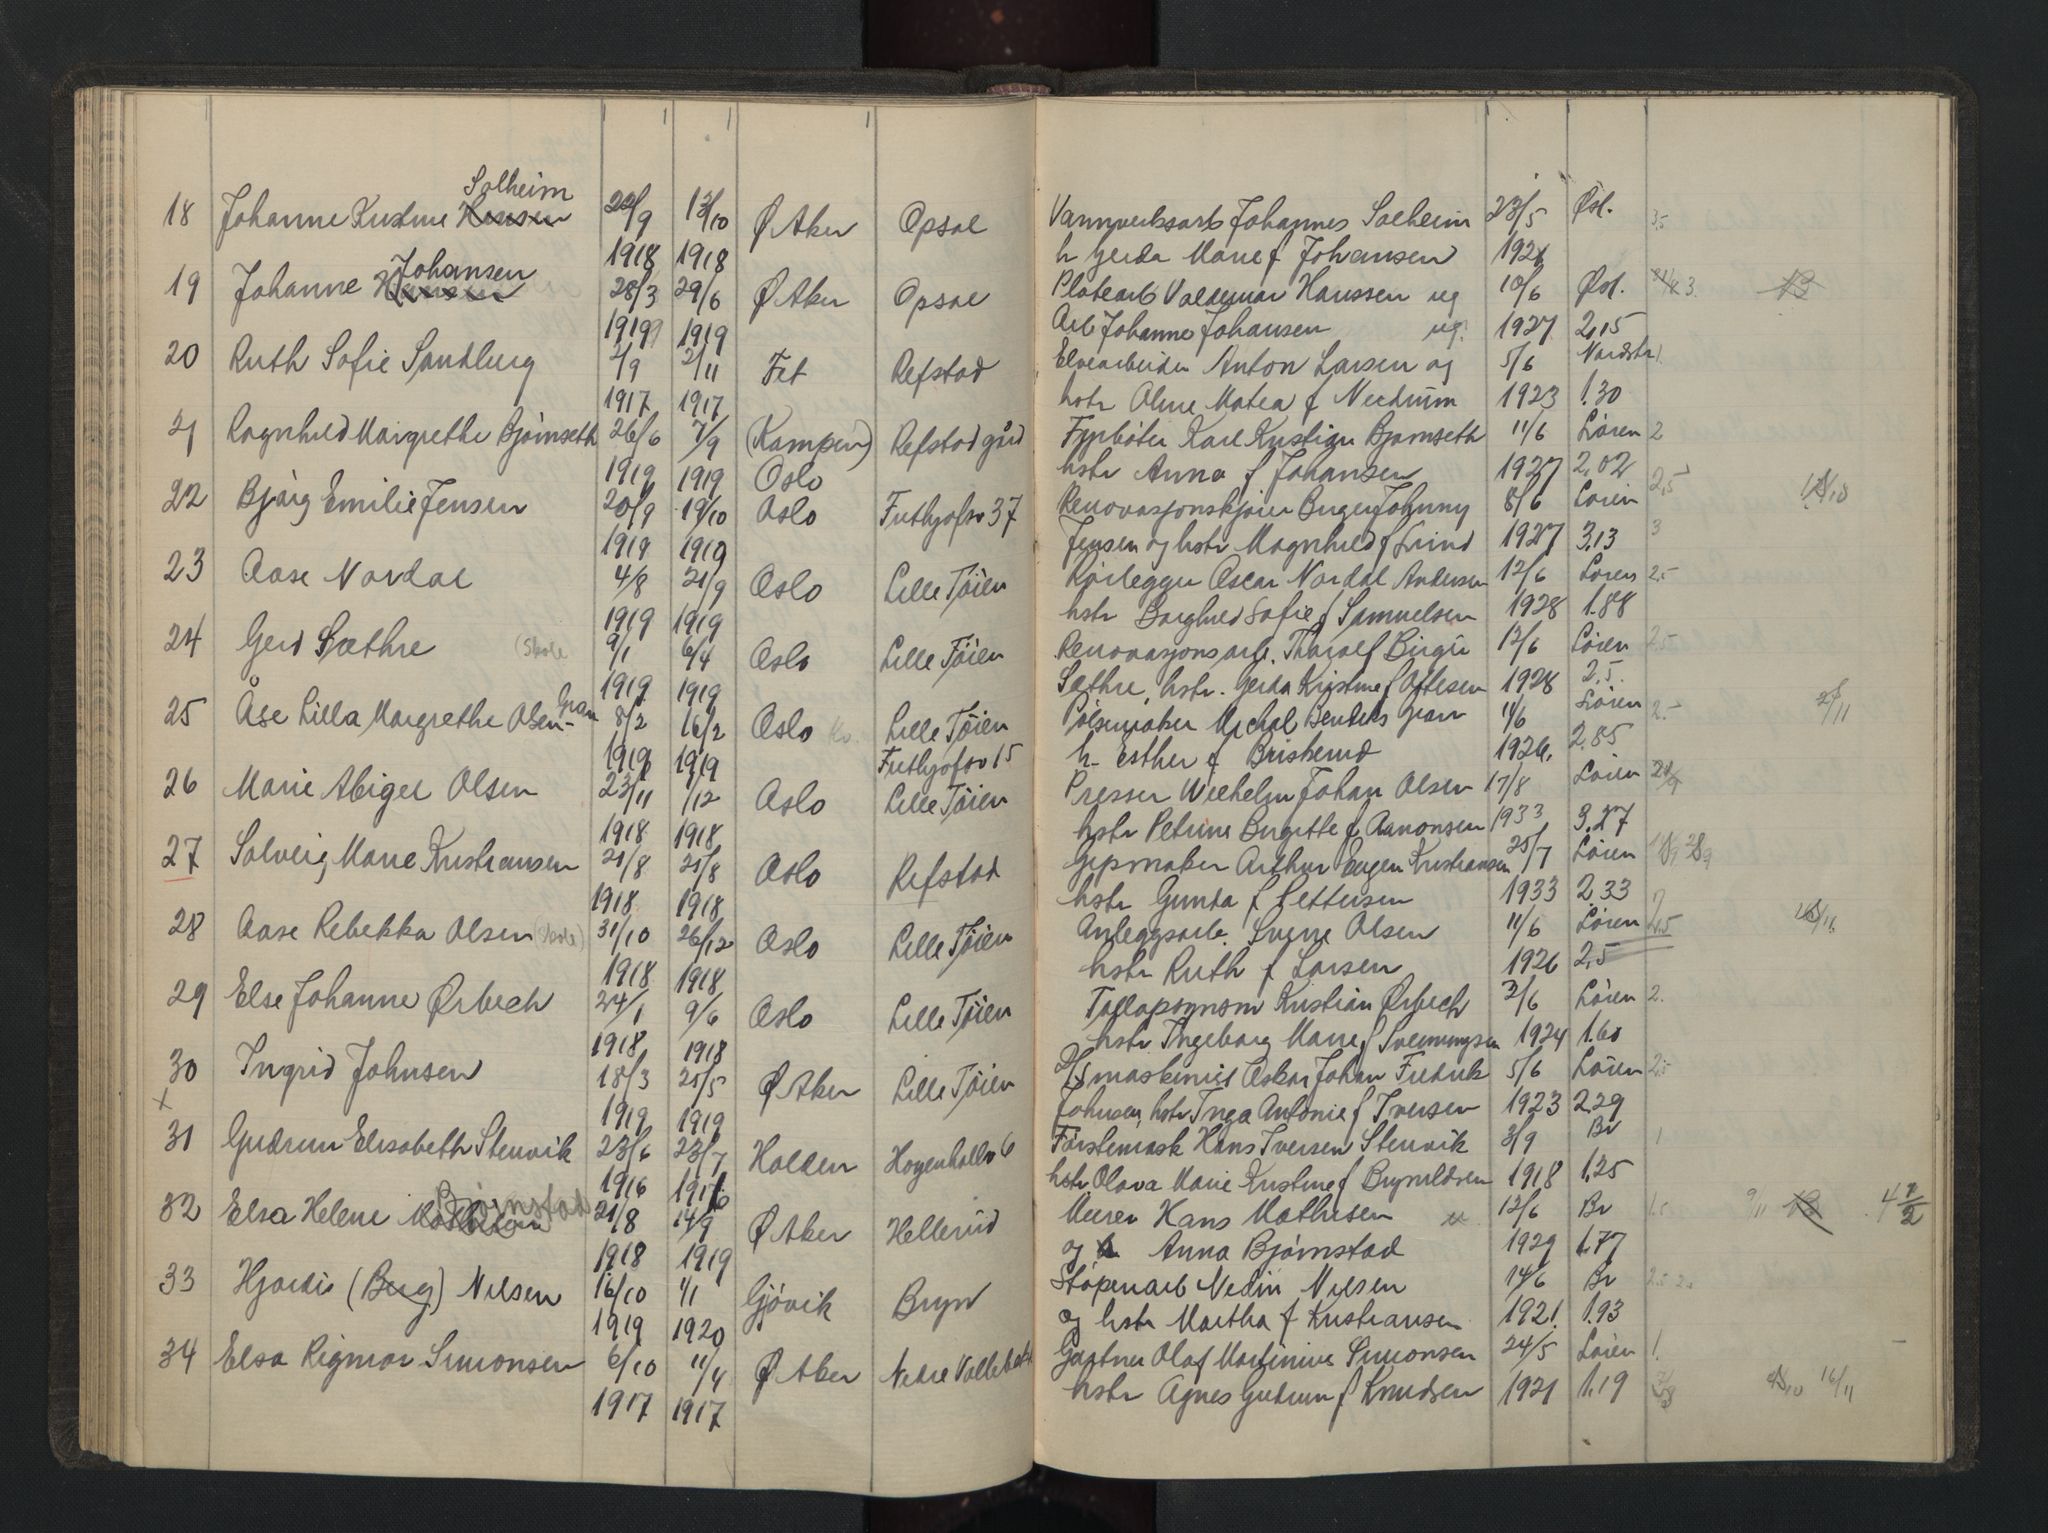 Solheim
18 Johanne Kristine Hansen 22/9 13/10 Ø Aker Opsal Vannverksarb Johannes Solheim 23/5 Øst. 3,5
1918 1918 h Gerda Marie f Johansen 1928
Johansen
19 Johanne Hansen 28/3 29/6 Ø Aker Opsal Platearb Valdemar Hanssen ug 10/6 Øst. 3.
1919 1919 Arb Johanne Johansen ug. 1927 2,15
20 Ruth Sofie Sandberg 2/9 2/11 Fet Refstad Elvearbeider Anton Larsen og 5/6 Nordstr 1.
1917 1917 hstr Oline Matea f Nerdrum 1923 1.30
21 Ragnhild Margrethe Bjørnseth 26/6 7/9 (Kampen) Refstad gård Fyrbøter Karl Kristian Bjørnseth 11/6 Løren 2
1919 1919 Oslo hstr Anna f Johansen 1927 2,02
22 Bjørg Emilie Jensen 20/9 19/10 Oslo Frithjofsv 37 Renovasjonskjører Birger Johnny 8/6 Løren 2,5
1919 1919 Jensen og hstr Magnhild f Lund 1927 3,13 3
23 Aase Nordal 4/8 21/9 Oslo Lille Tøien Rørlegger Oscar Nordal Andersen 12/6 Løren 2,5
1919 1919 hstr Borghild Sofie f Samuelsen 1928 1.88
24 Gerd Sæthre (Skole 9/1 6/4 Oslo Lille Tøien Renovasjonsarb. Thoralf Birger 12/6 Løren 2,5
1919 1919 Sæthre, hstr. Gerda Kristine f Ottesen 1928 2,5.
25 Åse Lilla Margrethe Olsen - Gran 8/2 16/2 Oslo Lille Tøien Pølsemaker Michal Gran 11/6 Løren 2,5 2/11
1919 1919 Frithjofsv 15 h. Esther f Briskerud 1926. 2.85
26 Marie Abigel Olsen 23/11 1/12 Oslo Lille Tøien Presser Wilhelm Johan Olsen 17/8 Løren
1918 1918 hstr Petrine Birgitte f Aanonsen 1933 3.27
27 Solveig Marie Kristiansen 21/8 25/8 Oslo Refstad Gipsmaker Arthur Eugen Kristiansen 25/7 Løren
1918 1918 hstr Gunda f Pettersen 1933 2.33
28 Aase Rebekka Olsen (Skole) 31/10 26/12 Oslo Lille Tøien Anleggsarb. Sverre Olsen 11/6 Løren 2,5
1918 1918 hstr Ruth f Larsen 1926 2,5
29 Else Johanne Ørbech 24/1 9/6 Oslo Lille Tøien Tollopsynsm Kristian Ørbech 2/6 Løren 2.
1918 1918 hstr Ingeborg Marie f Svenningsen 1924 1.60
30 Ingrid Johnsen 18/3 25/5 Ø Aker Lille Tøien D/S maskinist Oskar Johan Fredrik 5/6 Løren 2,5
x 1919 1919 Johnsen, hstr Inga Antonie f Iversen 1923 2.29
31 Gudrun Elisabeth Stenvik 23/6 23/7 Halden Høyenhallv 6 Førstemask Hans Iversen Stenvik 3/9 Br 1
1916 1916 hstr Olava Marie Kristine f Brynildsen 1918 1,25
Bjørnstad
32 Elsa Helene Mathisen 21/8 14/9 Ø Aker Hellerud Murer Hans Mathisen u. 12/6 Br 1.5 9/11 4 1/2
1918 1919 og Anna Bjørnstad 1929 1.77
33 Hjørdis (Berg) Nilsen 16/10 1/1 Gjøvik Bryn Støperiarb Nilsen 14/6 Br
1919 1920 og hstr Martha f Kristiansen 1921. 1.93
34 Elsa Rigmor Simonsen 6/10 11/4 Ø Aker Nedre Gartner Olaf Martinius Simonsen 24/5 Løren 1.
1917 1917 hstr Agnes Gudrun f Knudsen 1921 1,19 16/11